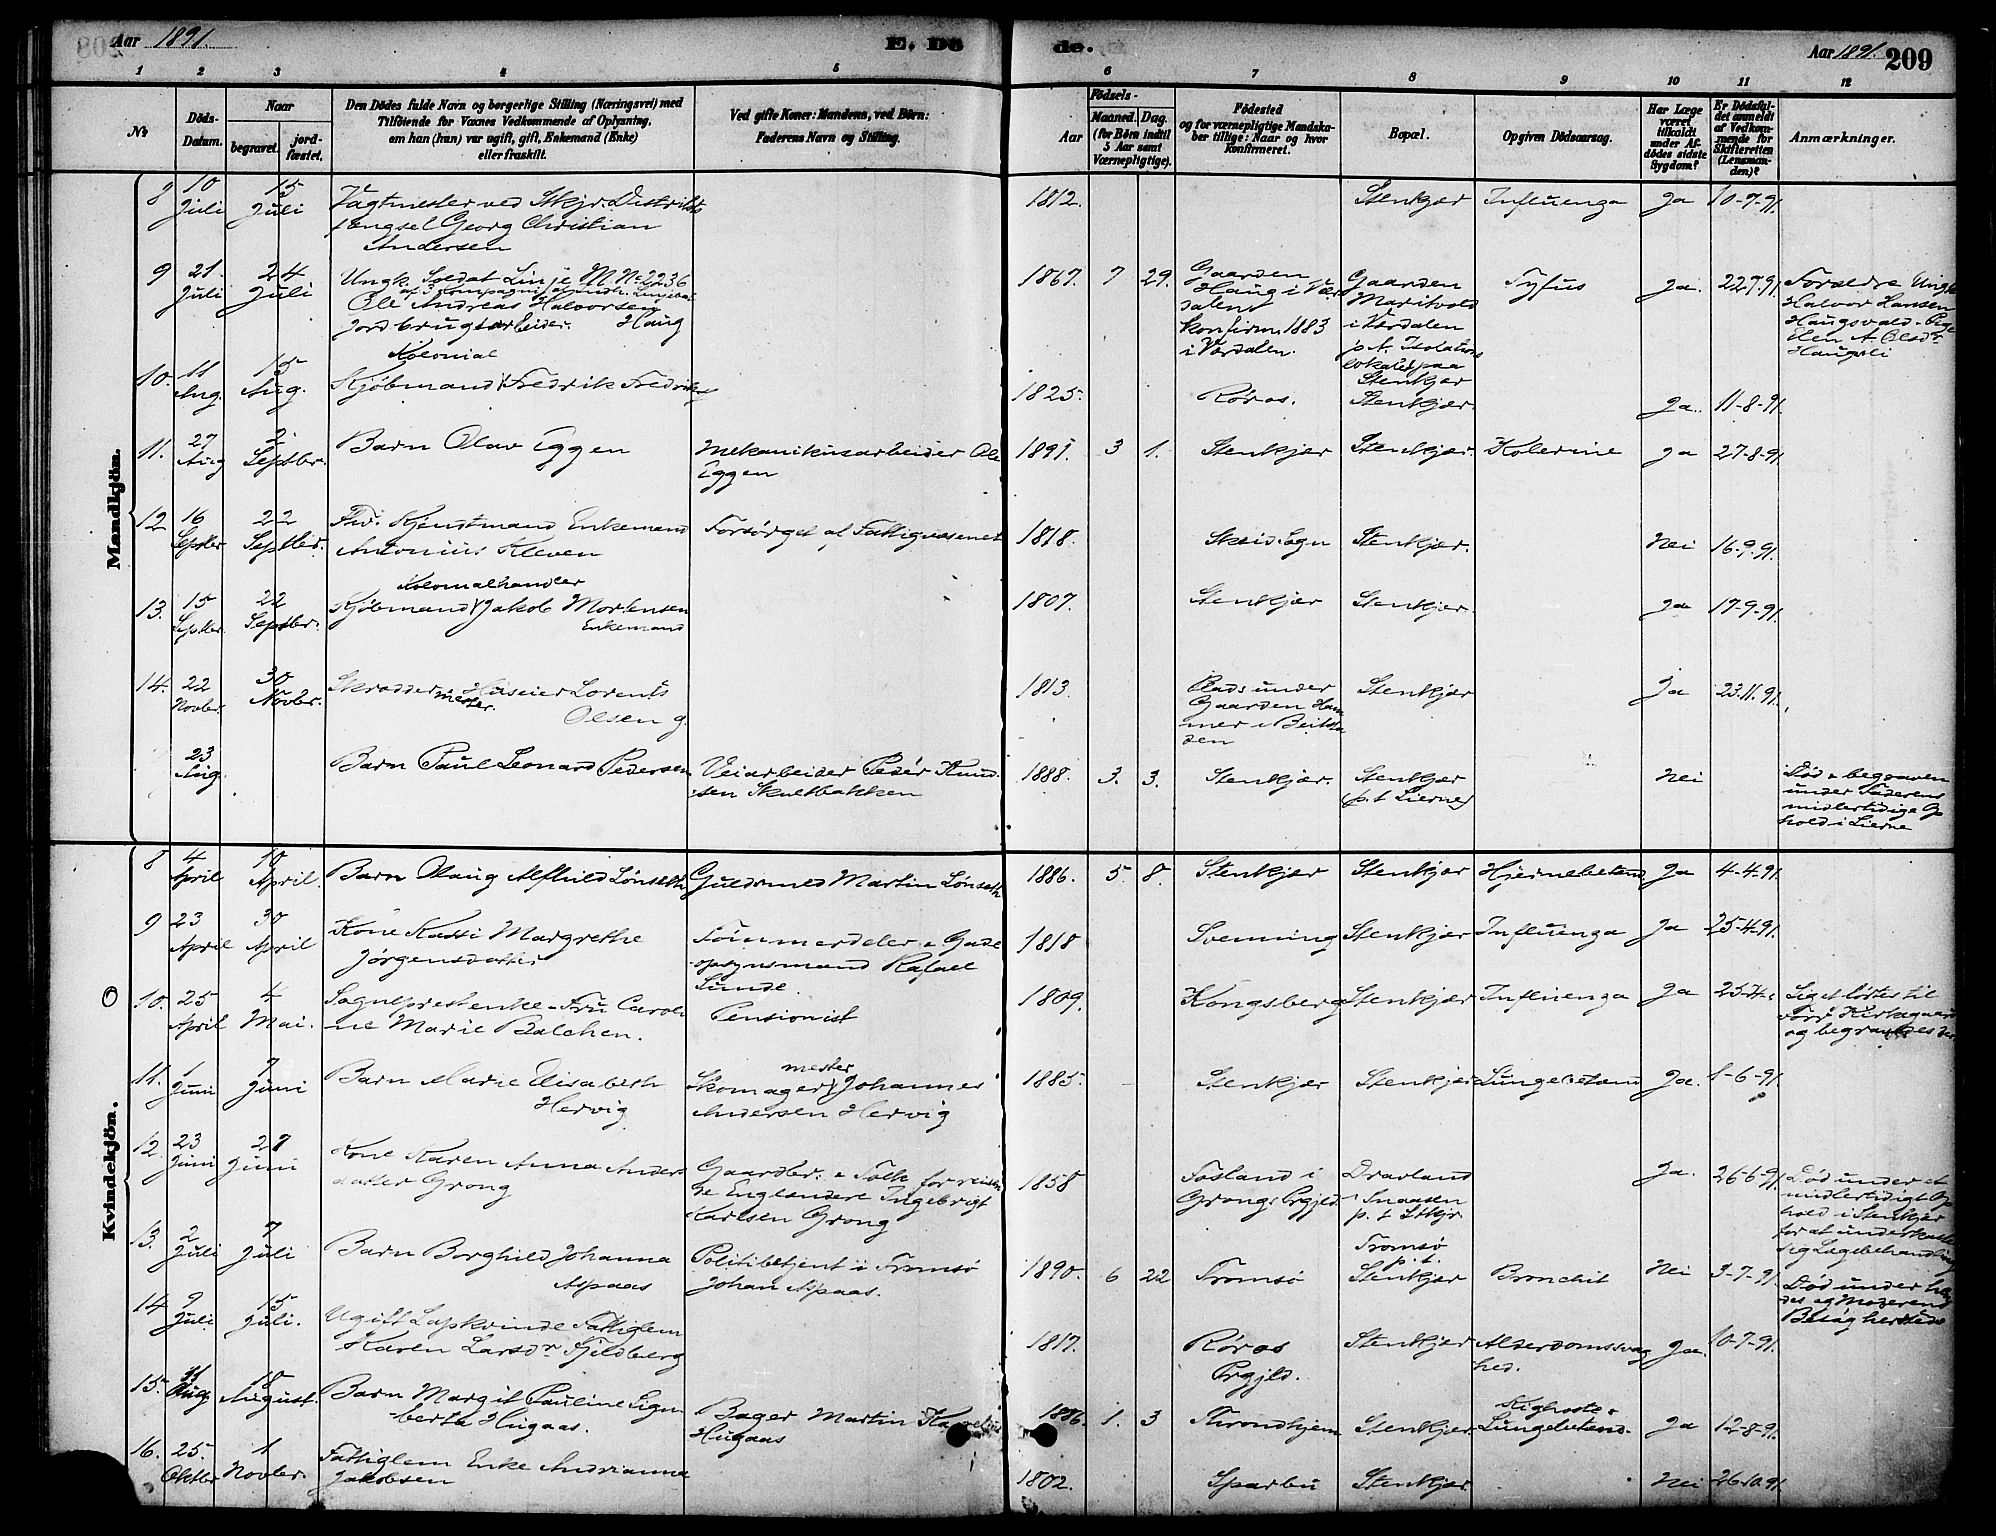 Aar 1891. E. Dö de. Aar 1891. 209
1 2 3 4 5 6 7 8 9 10 11 12
№
Döds-Datum.
Naar
begravet.
jord-fæstet.
Den Dödes fulde Navn og borgerlige Stilling (Næringsvei) med
Tilföiende for Voxnes Vedkommende af Oplysning,
om han (hun) var ugift, gift, Enkemand (Enke)
eller fraskilt.
Ved gifte Koner: Mandens, ved Börn:
Faderens Navn og Stilling.
Födsels-
Aar
Maaned. Dag.
(for Börn indtil
5 Aar samt
Værnepligtige).
Födested
og for værnepligtige Mandska-
ber tillige: Naar og hvor
konfirmeret.
Bopæl.
Opgiven Dödsaarsag.
Har Læge
været
tilkaldt
under Af-
dödes sidste
Sygdom?
Er Dödsfal-
det anmeldt
af Vedkom-
mende for
Skifteretten
(Lensman-
den)?
Anmærkninger.
Mandkjön.
8 10 Juli 15 Juli Vagtmester ved Stkjr. Distrikts
fængsel Georg Christian
Andersen
1812. Stenkjær Influenza Ja 10-7-91.
9 21. Juli 24 Juli Ungk. Soldat Linje M. No 2236
Ole Andreas Halvorsen
Jordbrugsarbeider. Haug
1867. 7 29. Gaarden
Haug i Vær
dalen
konfirm. 1883
i Værdalen.
Gaarden
Maritvold
i Værdalen
p.t. Isolations
lokalet paa
Stenkjær
Tyfus Ja. 22.7.91. Forældre Ungk
Halvor Hansen
Haugsvald. Pige
Elen A. Olsdr
Haugsli
10. 11 Aug. 15 Aug. Kolonial
Kjöbmand Fredrik Fredriksen
1825. Röros. Stenkjær. Ja. 11-8-91.
11. 27 Aug 2 Septbr. Barn Olav Eggen Mekanikusarbeider Ole
Eggen
1891. 3 1. Stenkjær Stenkjær. Kolerine Ja 27-8-91.
12 16 Septbr 22 Septbr. Fhv. Kjendtmand Enkemand
Antonius Kleven
Forsörget af Fattigvæsenet
1818. Skeid Sogn Stenkjær. Nei 16-9-91.
13. 15 Septbr. 22 Septbr. Kolonialhandler
Kjöbmand Jakob Mortensen
Enkemand
1807. Stenkjær Stenkjær. Ja 17-9-91.
14. 22 Novbr. 30 Novbr. Skræddermester. Huseier Lorents
Olsen g.
1813. Plads under
Gaarden Ham
mer i Beitsta
den
Stenkjær Ja 23.11.91.
23 Aug. Barn Paul Leonard Pedersen Veiarbeider Peder Knud
sen Skuelbakken
1888. 3. 3. Stenkjær. Stenkjær
(p.t. Lierne)
Nei Död & begraven
under Faderens
midlertidige Op
hold i Lierne
Kvindekjön.
8 4 April 10 April. Barn Olaug Alfhild Lönseth Guldsmed Martin Lönseth
1886. 5. 8. Stenkjær Stenkjær Hjernebetænd. Ja 4-4-91.
9 23 April 30 April Kone Kathi Margrethe
Jörgensdatter
Tömmerdeler & Gade
opsynsmand Rafael
Lunde.
1818 Svenning Stenkjær Influenza Ja 25-4-91.
10. 25 April 4 Mai. Sogneprestenke-Fru Caroli
ne Marie Balchen.
Pensionist
1809. Kongsberg Stenkjær Influenza Ja 25-4- Liget förtes til
Kirkegaard
og begravedes der
11. 1 Juni 7 Juni Barn Marie Elisabeth
Hervig
mester
Skomager Johannes
Andersen Hervig
1885. Stenkjær Stenkjær Lungebetænd Ja. 1-6-91.
12. 23 Juni 27 Juni Kone Karen Anna Anders
datter Grong
Gaardbr. & Tolk for reisen
de Englændere Ingebrigt
Karlsen Grong
1858 Fosland i
Grongs Prgjld.
i Snaasen
p.t. Stkjr.
Ja. 26-6-91 Död under et
midlertidigt Op
hold i Stenkjær
for at underkaste
sig Lægebehandling
13. 2 Juli 7 Juli Barn Borghild Johanna
Aspaas
Politibetjent i Tromsö
Johan Aspaas.
1890. 6 22 Tromsö Tromsö
p.t.
Stenkjær
Bronchit Nei 3-7-91. Död under hen
des og Moderens
Besög hersteds
14 9 Juli 15 Juli. Ugift Lapkvinde Fattiglem
Karen Larsdr. Fjeldberg
1817. Röros
Prgjld.
Stenkjær Alderdomssvag
hed.
Ja. 10-7-91.
15. 11 Aug 18 August. Barn Margit Pauline Sign
berthe Hugaas.
Bager Martin
Hugaas
1886. 1. 3 Throndhjem Stenkjær. Kighoste &
Lungebetænd.
Ja 12-8-91.
16. 25. Oktbr. 1 Novbr. Fattiglem Enke Andrianna
Jakobsen
1802. Sparbu Stenkjær Nei 26-10-91.